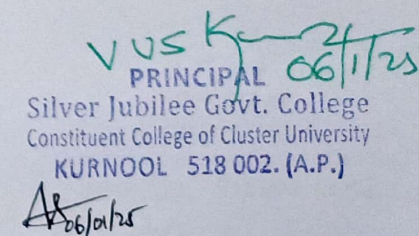 V V S K
06/1/25
PRINCIPAL
Silver Jubilee Govt. College
Constituent College of Cluster University
KURNOOL 518 002. (A.P.)
06/01/25